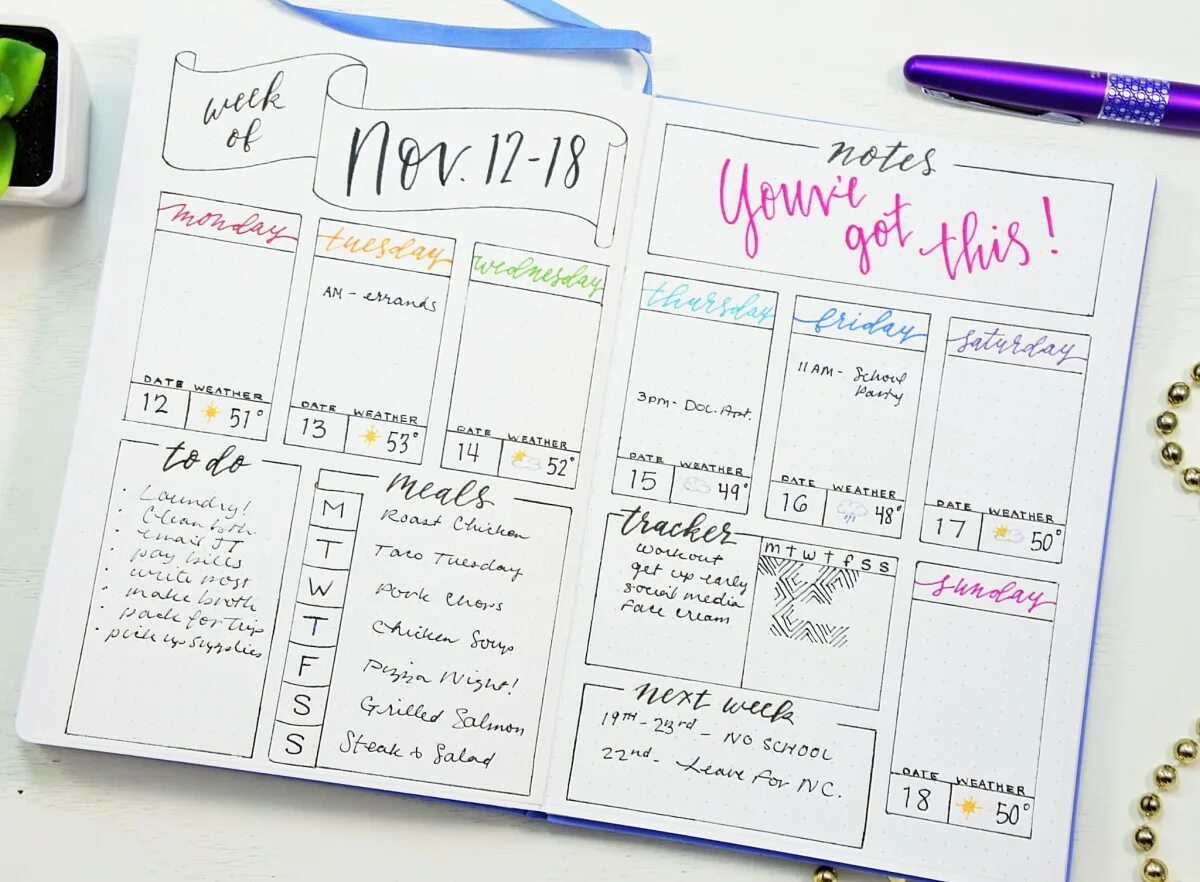 week
of
Nov. 12-18
monday
DATE WEATHER
12 51°
tuesday
AM - errands
DATE WEATHER
13 53°
wednesday
DATE WEATHER
14 52°
to do
· Laundry!
· Clean bth.
· email JT
· pay bills
· write post
· make broth
· pack for trip
· pick up supplies
meals
M Roast Chicken
T Taco Tuesday
W Pork Chops
T Chicken Soup
F Pizza Night!
S Grilled Salmon
S Steak & Salad
notes
You've
got this!
thursday
3pm - Doc. Apt.
DATE WEATHER
15 49°
friday
11 AM - School
Party
DATE WEATHER
16 48°
saturday
DATE WEATHER
17 50°
tracker
m t w t f s s
workout
get up early
social media
face cream
sunday
DATE WEATHER
18 50°
next week
19TH - 23rd - NO SCHOOL
22nd - Leave for NC.